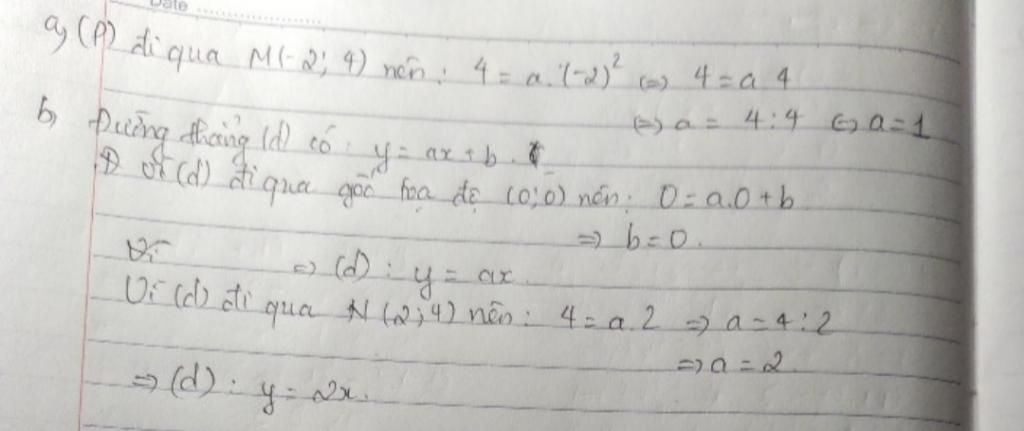 Date
a, (P) đi qua M(-2; 4) nên: 4 = a.(-2)² (=) 4 = a.4
(=) a = 4:4 (=) a = 1
b, Đường thẳng (d) có: y = ax + b.
Vì (d) đi qua gốc tọa độ (0;0) nên: 0 = a.0 + b
=> b = 0.
Vì => (d): y = ax.
Vì (d) đi qua N(2;4) nên: 4 = a.2 => a = 4:2
=> a = 2.
=> (d): y = 2x.